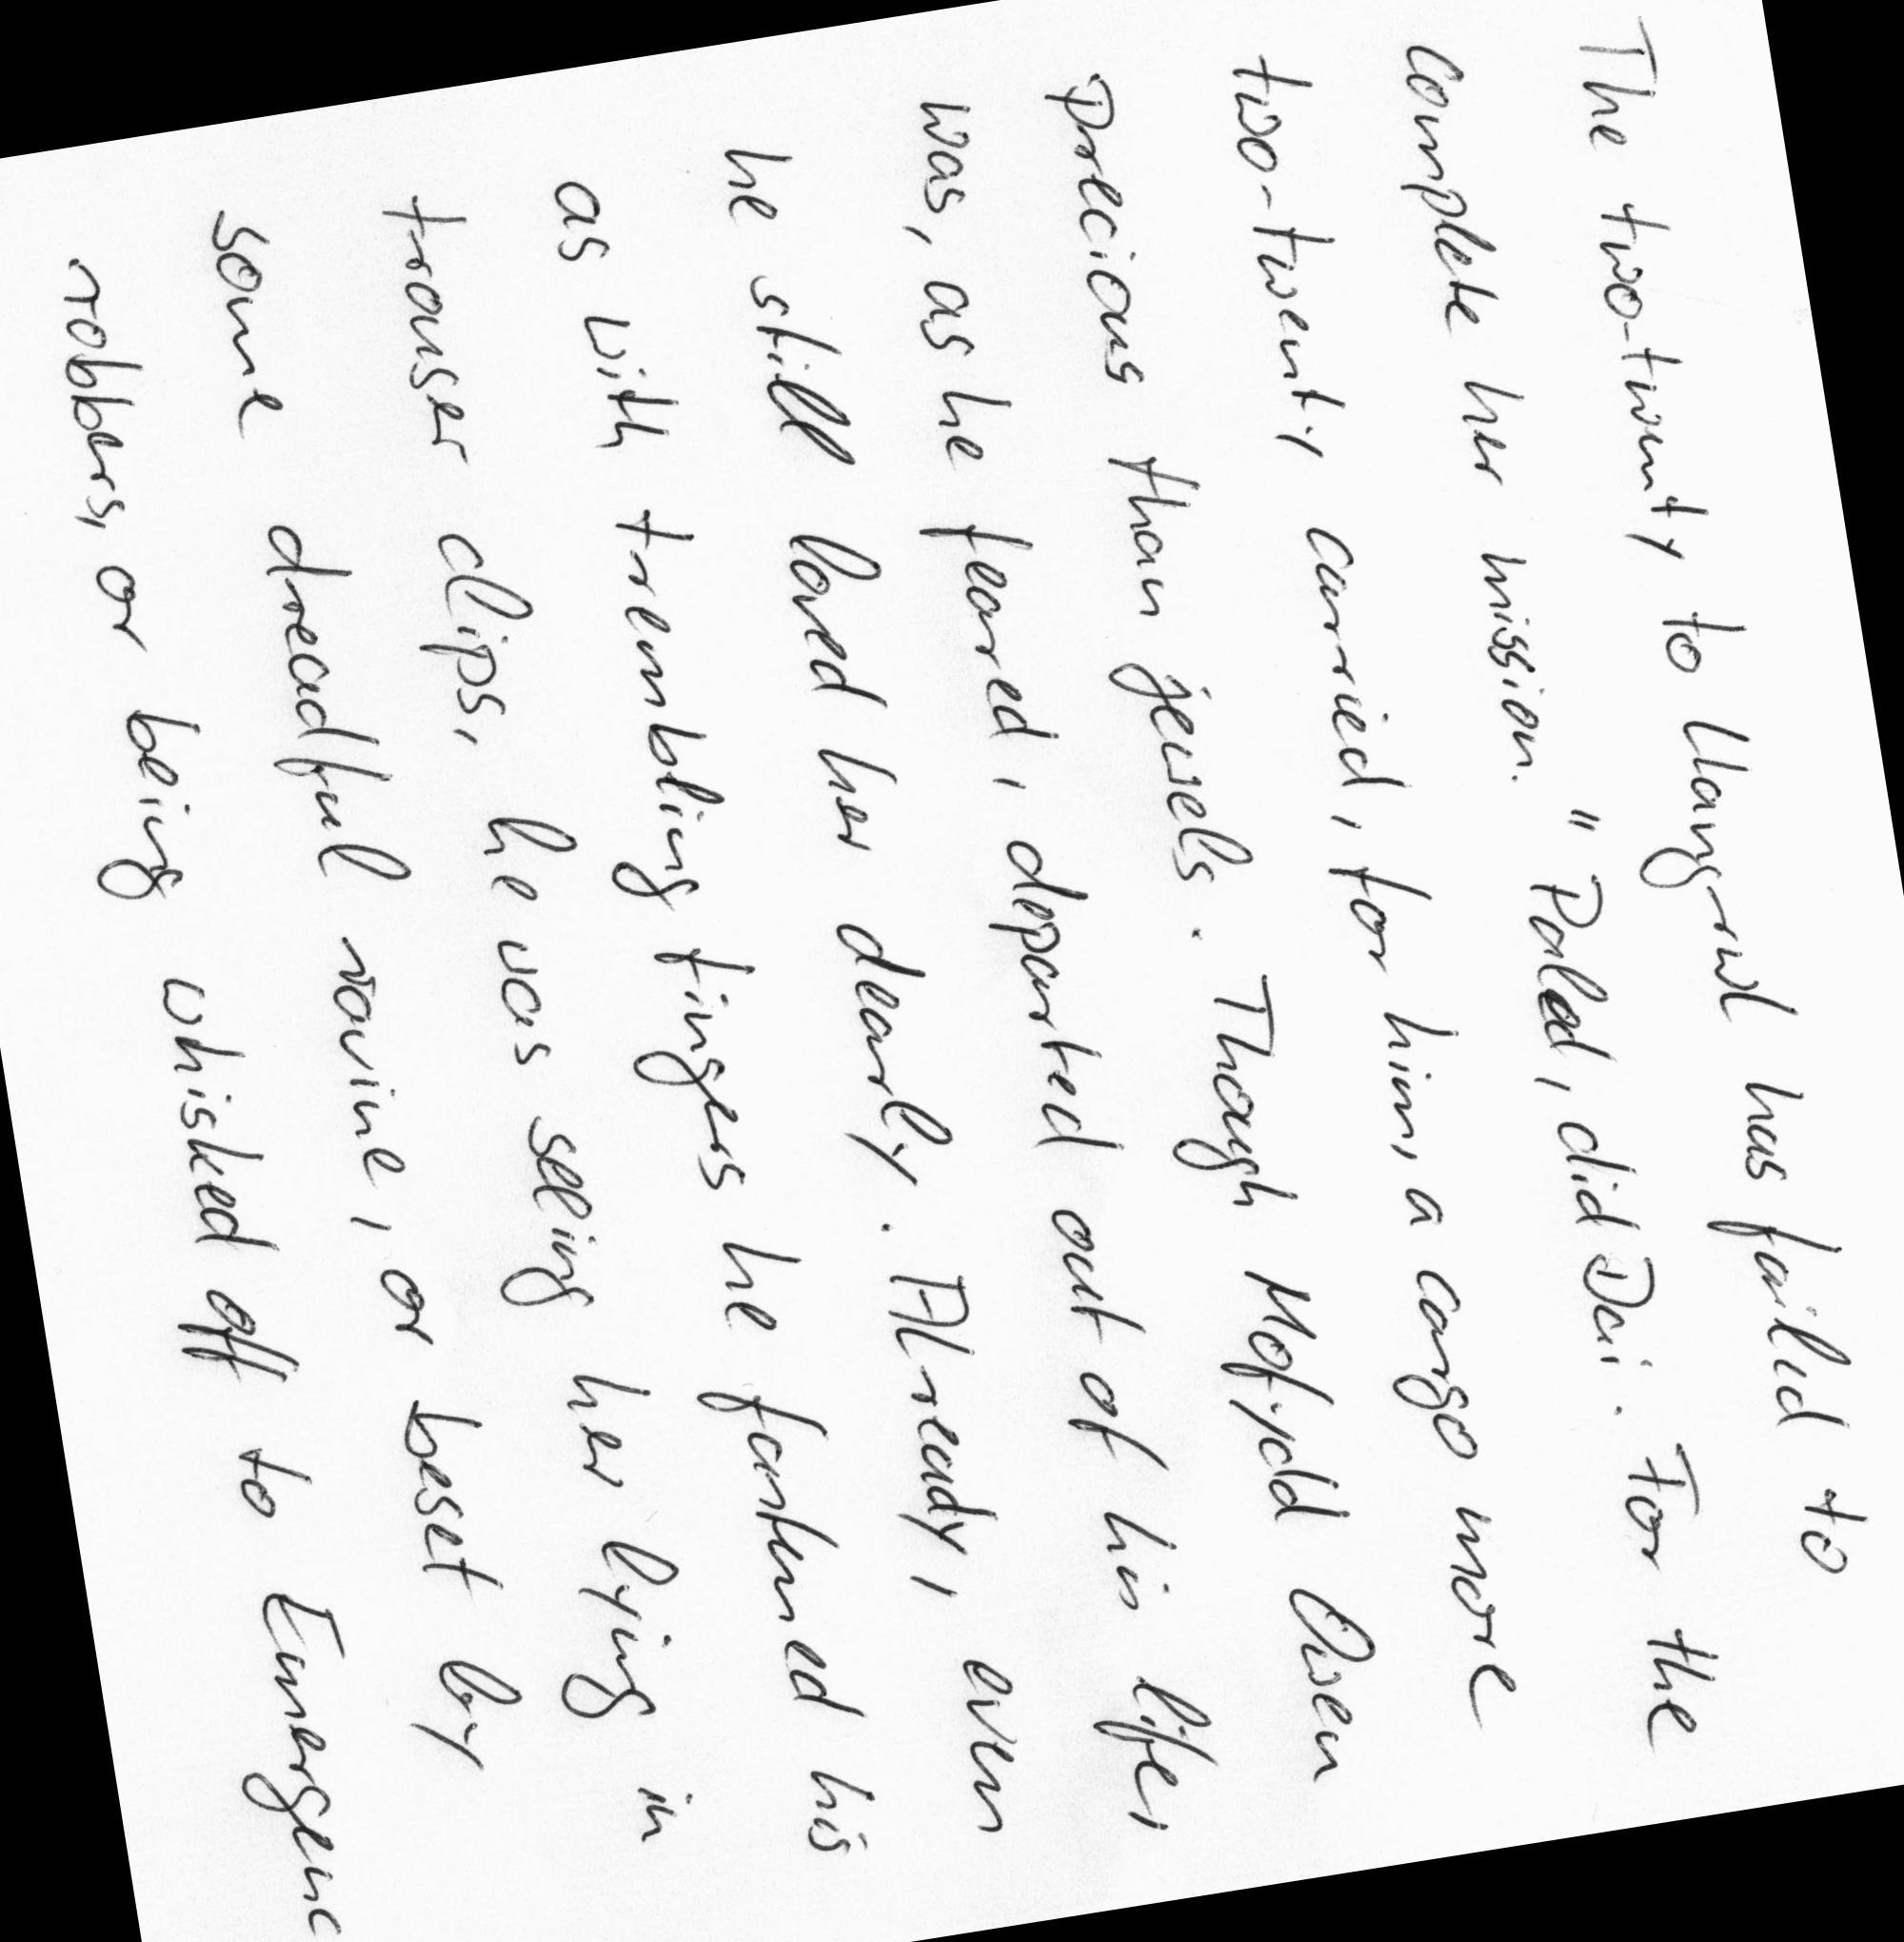 The two-twenty to Llangrwl has failed to
complete her mission. " Paled, did Dai. For the
two-twenty carried, for him, a cargo more
precious than jewels. Though Mofydd Owen
was, as he feared, departed out of his life,
he still loved her dearly. Already, even
as with trembling fingers he fastened his
trouser clips, he was seeing her lying in
some dreadful ravine, or beset by
robbers, or being whisked off to Emergenc